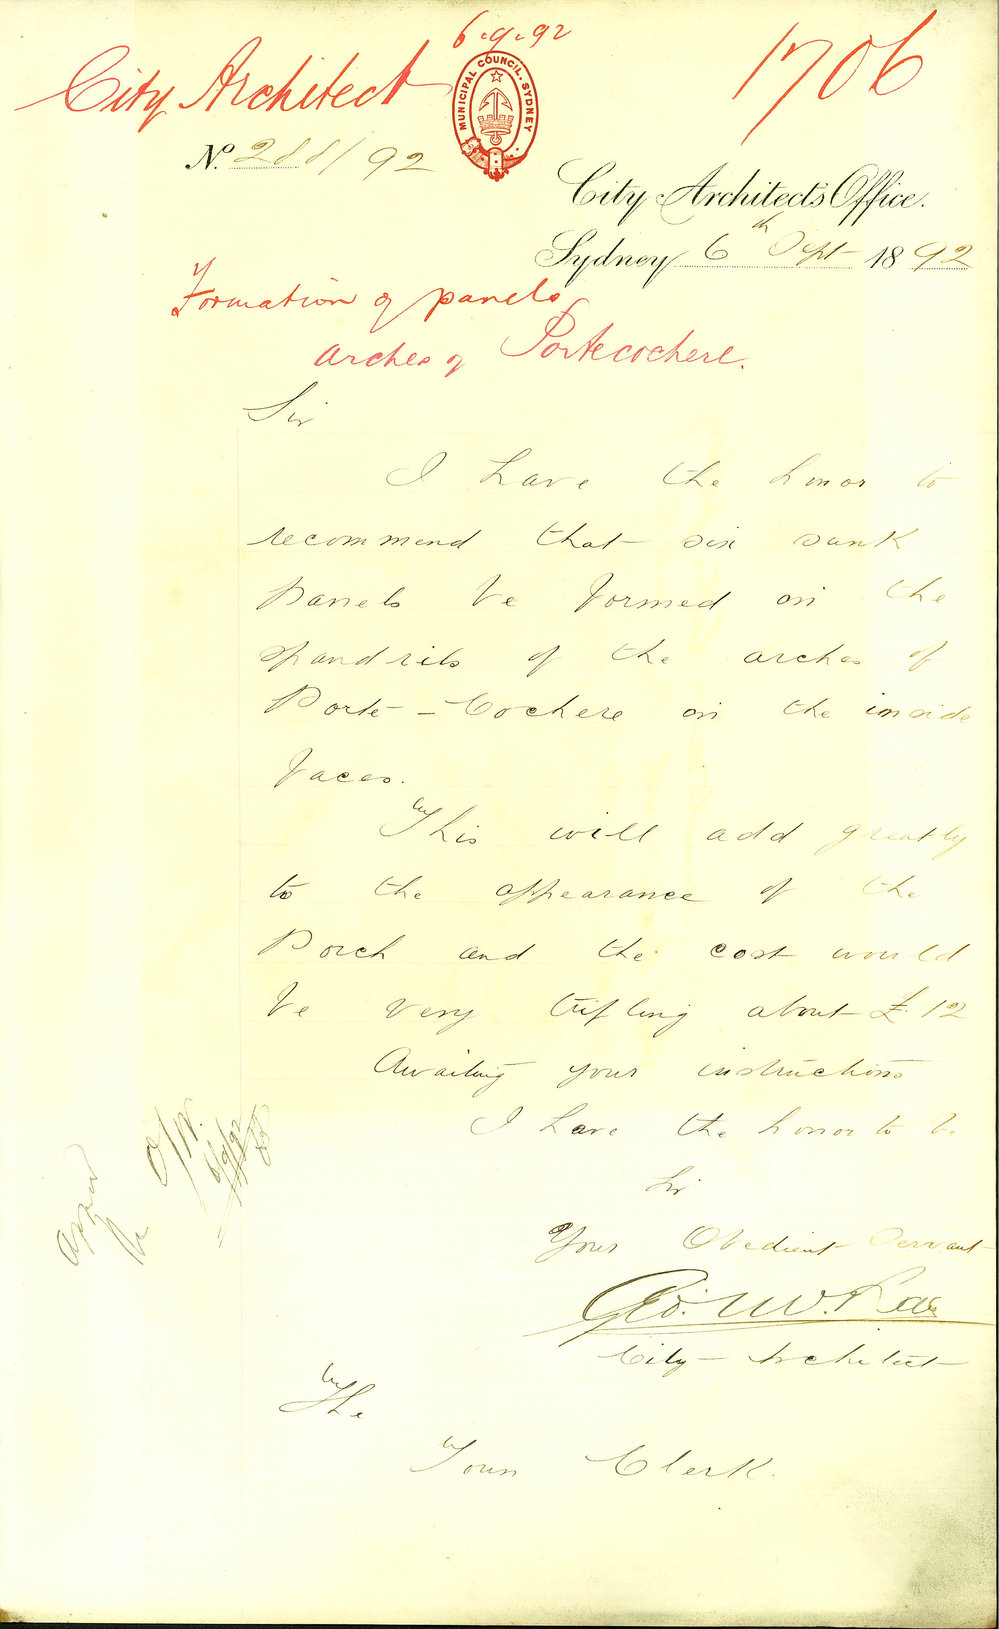 6.9.92
City Architect
1706
MUNICIPAL COUNCIL. SYDNEY
No. 288/92
City Architect's Office.
Sydney 6th Sept 1892
Formation of panels
arches of Portecochere.
Sir
I have the honor to
recommend that six sunk
panels be formed on the
spandrils of the arches of
Porte-Cochere on the inside
faces.
This will add greatly
to the appearance of the
Porch and the cost would
be very trifling about £12
Awaiting your instructions
I have the honor to be
Sir
Your Obedient Servant
Geo. McRae
City Architect
The
Town Clerk.
6/9/92